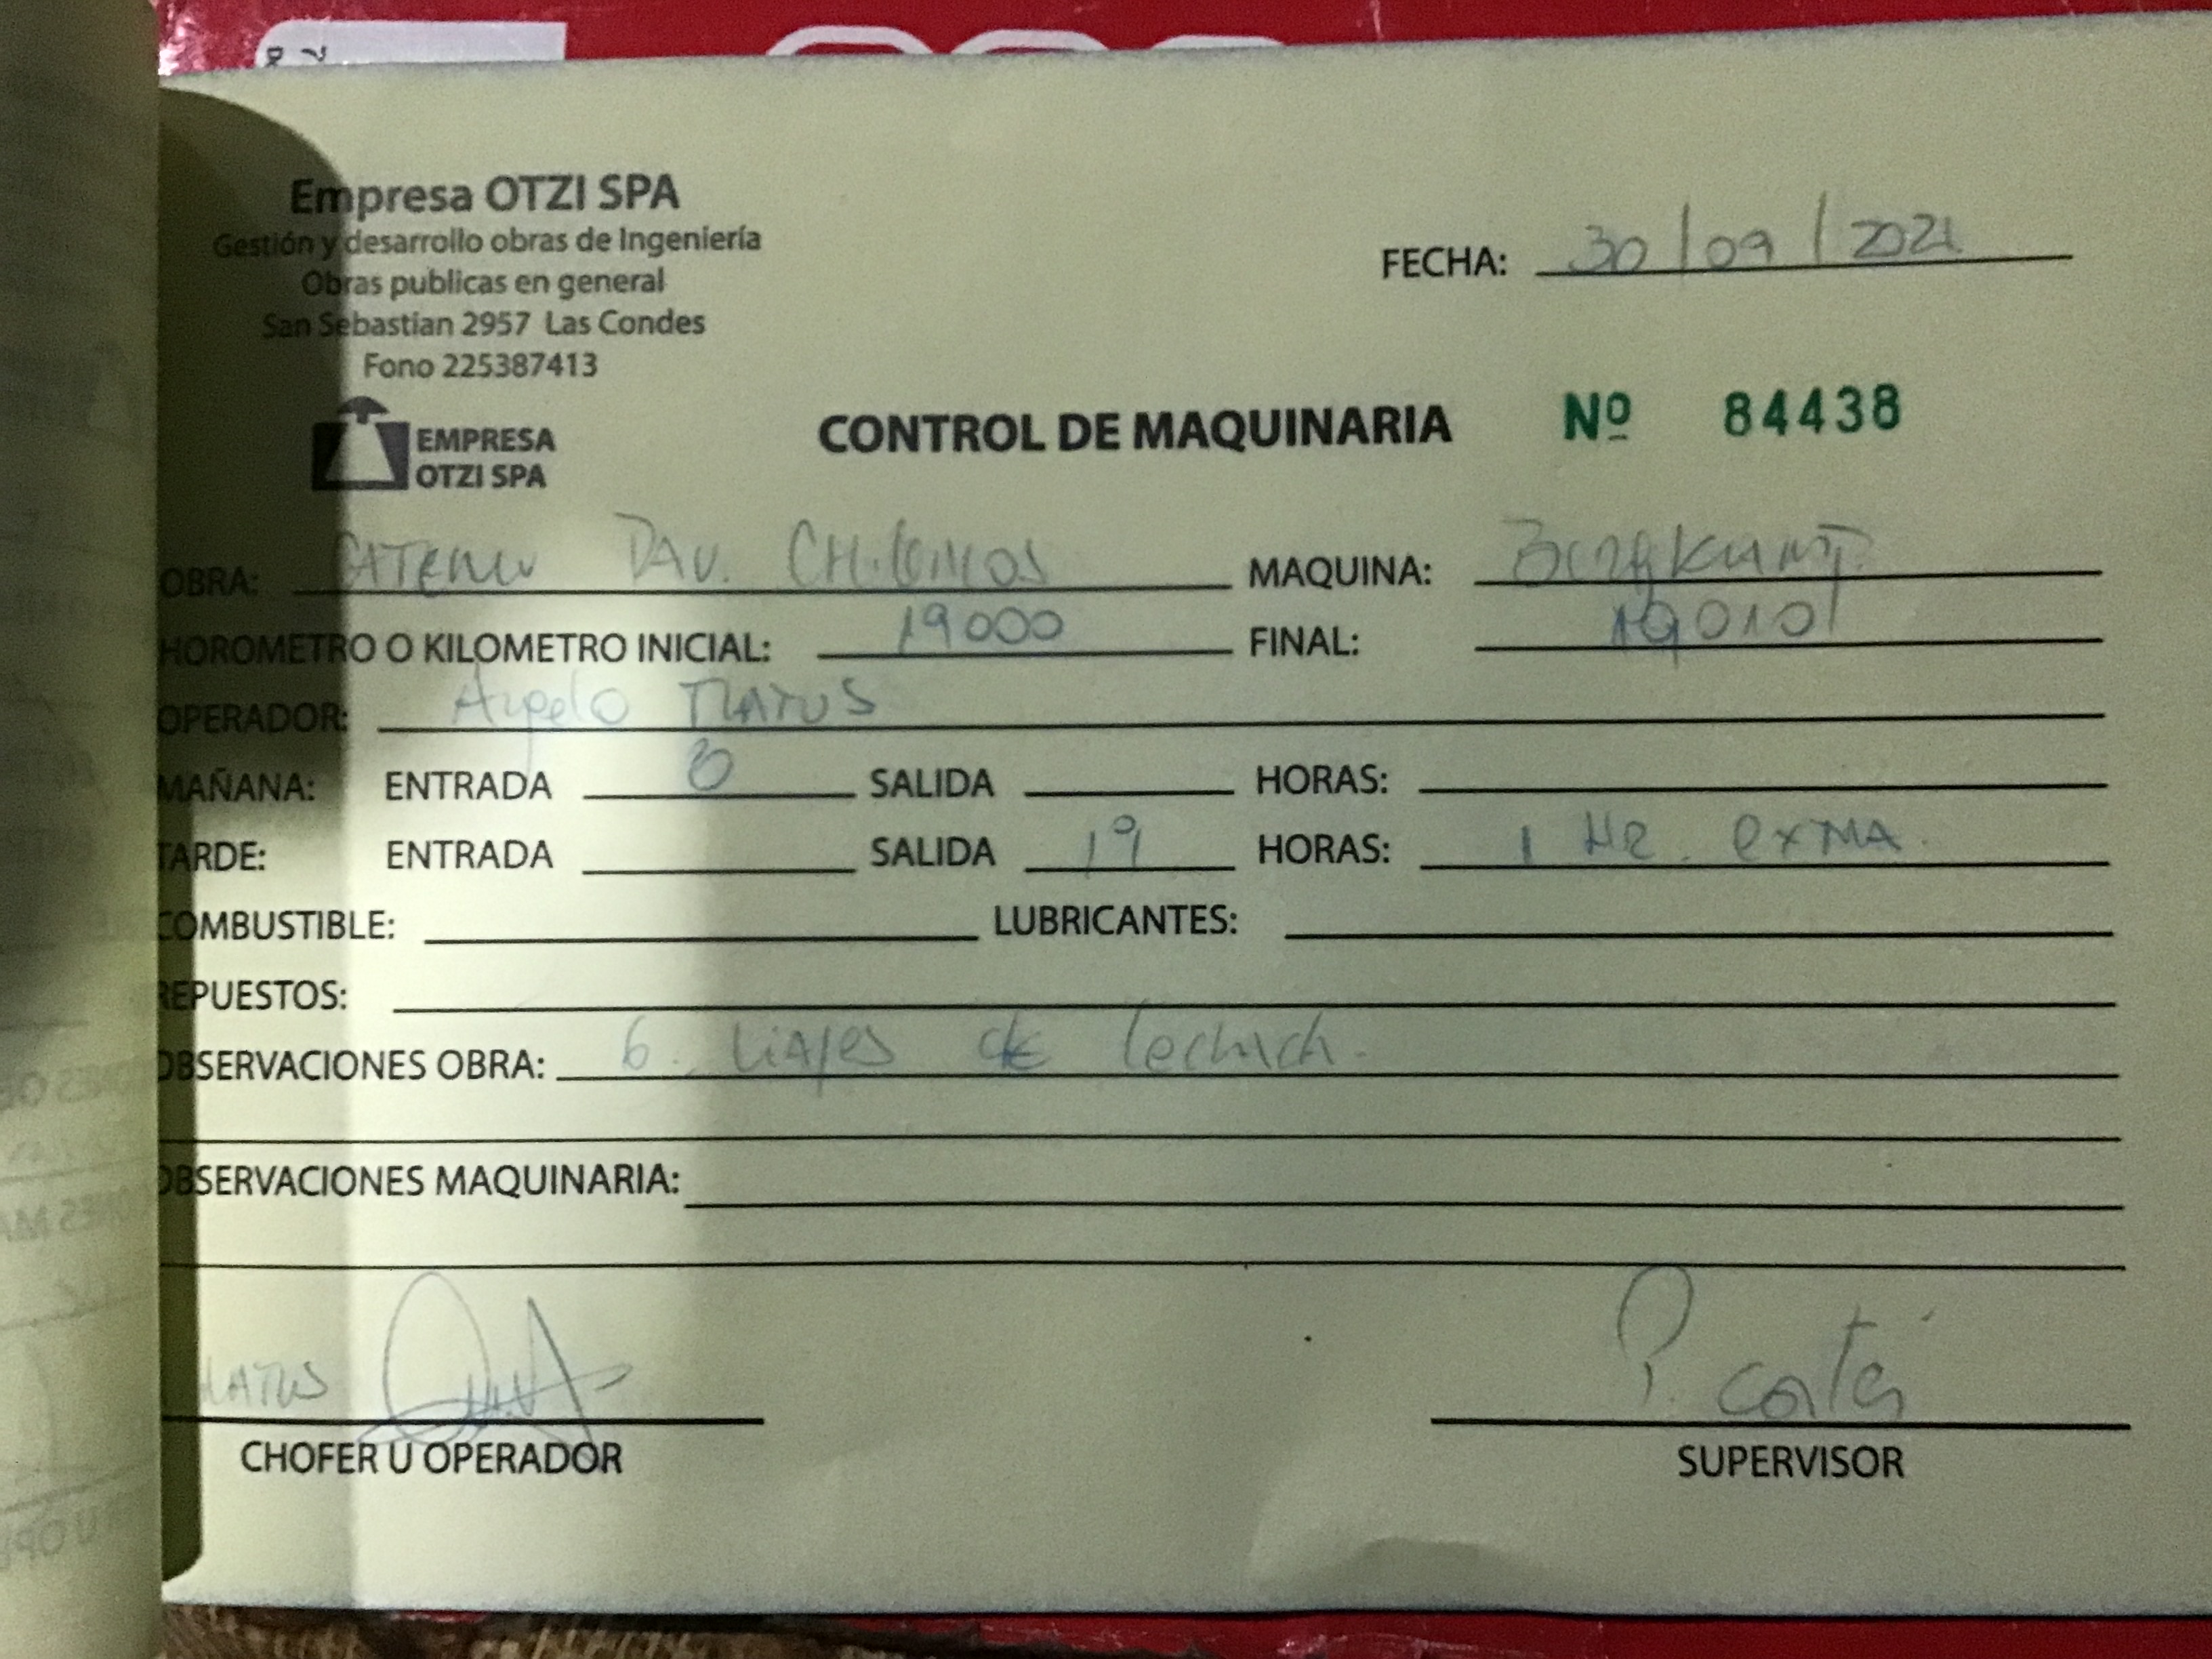 Empresa OTZI SPA
Gestión y desarrollo obras de Ingeniería
Obras publicas en general
San Sebastian 2957 Las Condes
Fono 225387413
FECHA: 30/09/2021
EMPRESA
OTZI SPA
CONTROL DE MAQUINARIA Nº 84438
OBRA: MAQUINA:
HOROMETRO O KILOMETRO INICIAL: 19000 FINAL: 19010
OPERADOR:
MAÑANA: ENTRADA 8 SALIDA HORAS:
TARDE: ENTRADA SALIDA 19 HORAS: 1 HR. extra.
COMBUSTIBLE: LUBRICANTES:
REPUESTOS:
OBSERVACIONES OBRA: 6. viajes de
OBSERVACIONES MAQUINARIA:
CHOFER U OPERADOR
SUPERVISOR